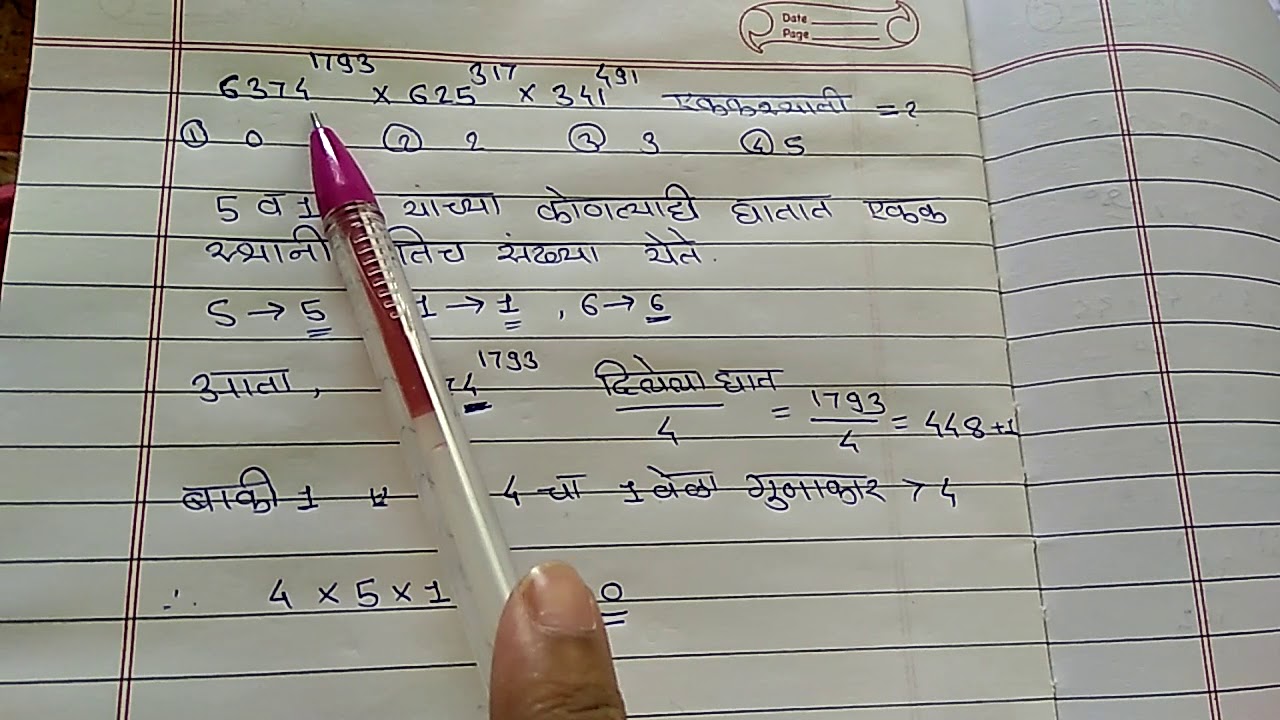 Date
Page
6374^1793 × 625^317 × 341^491 एककस्थानी = ?
① 0 ② 2 ③ 3 ④ 5
5 व 1 याच्या कोणत्याही घातात एकक
स्थानी तिच संख्या येते.
5 → 5 1 → 1 , 6 → 6
आता, 4^1793 दिलेला घात / 4 = 1793 / 4 = 448 + 1
बाकी 1 4 चा 1 वेळा गुणाकार → 4
∴ 4 × 5 × 1 0